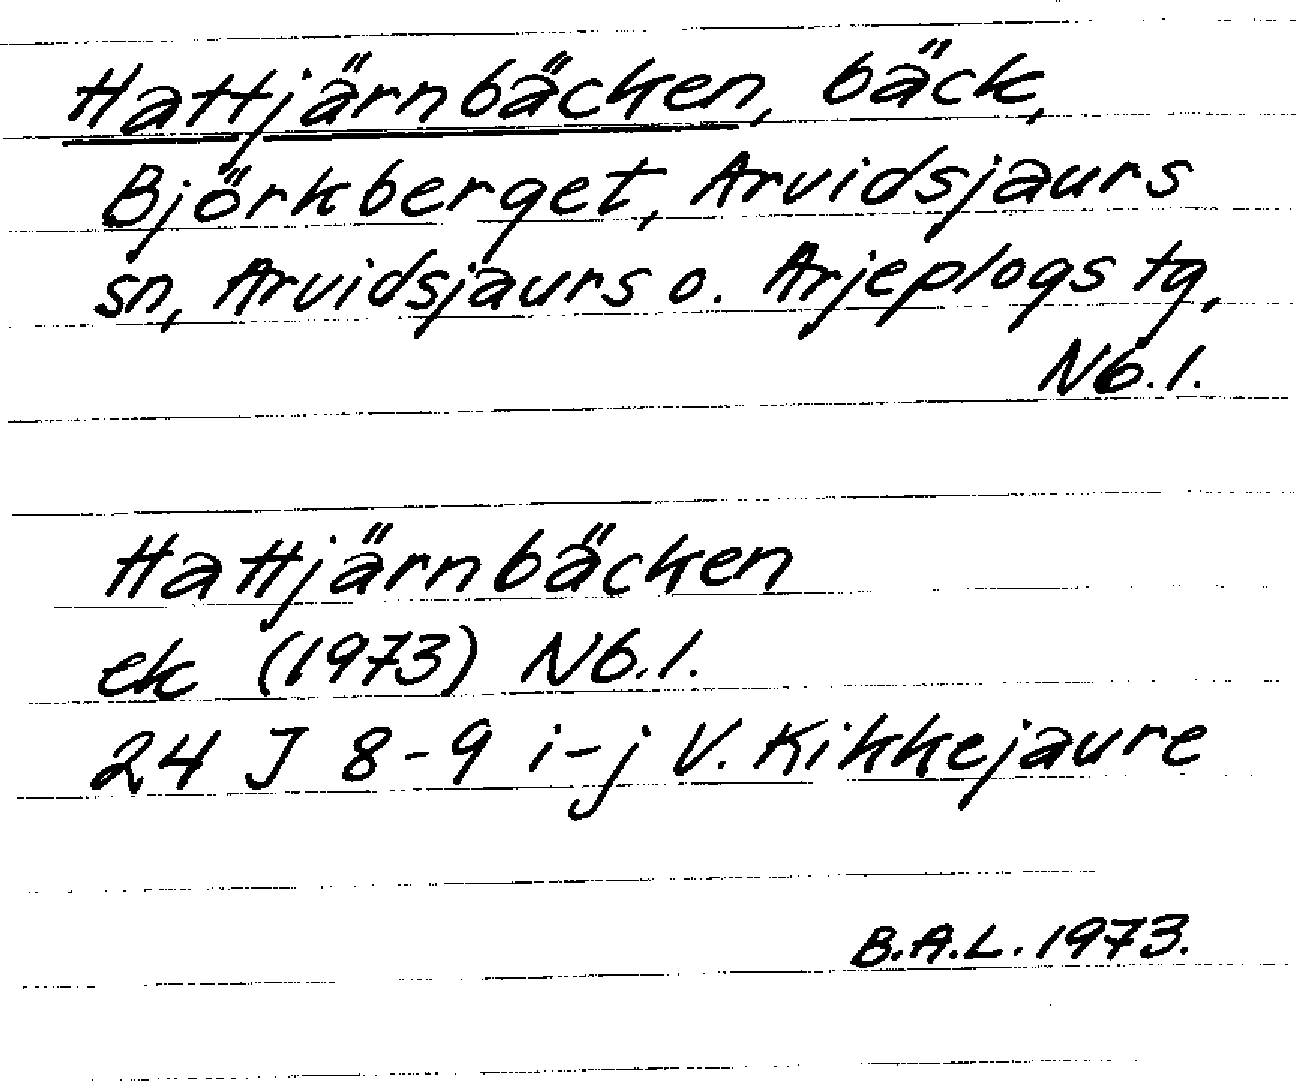 Hattjärnbäcken, bäck,
Björkberget, Arvidsjaurs
sn, Arvidsjaurs o. Arjeplogs tg,
Nb.l.
Hattjärnbäcken
ek (1973) Nb.l.
24 J 8-9 i-j V. Kikkejaure
B.A.L. 1973.